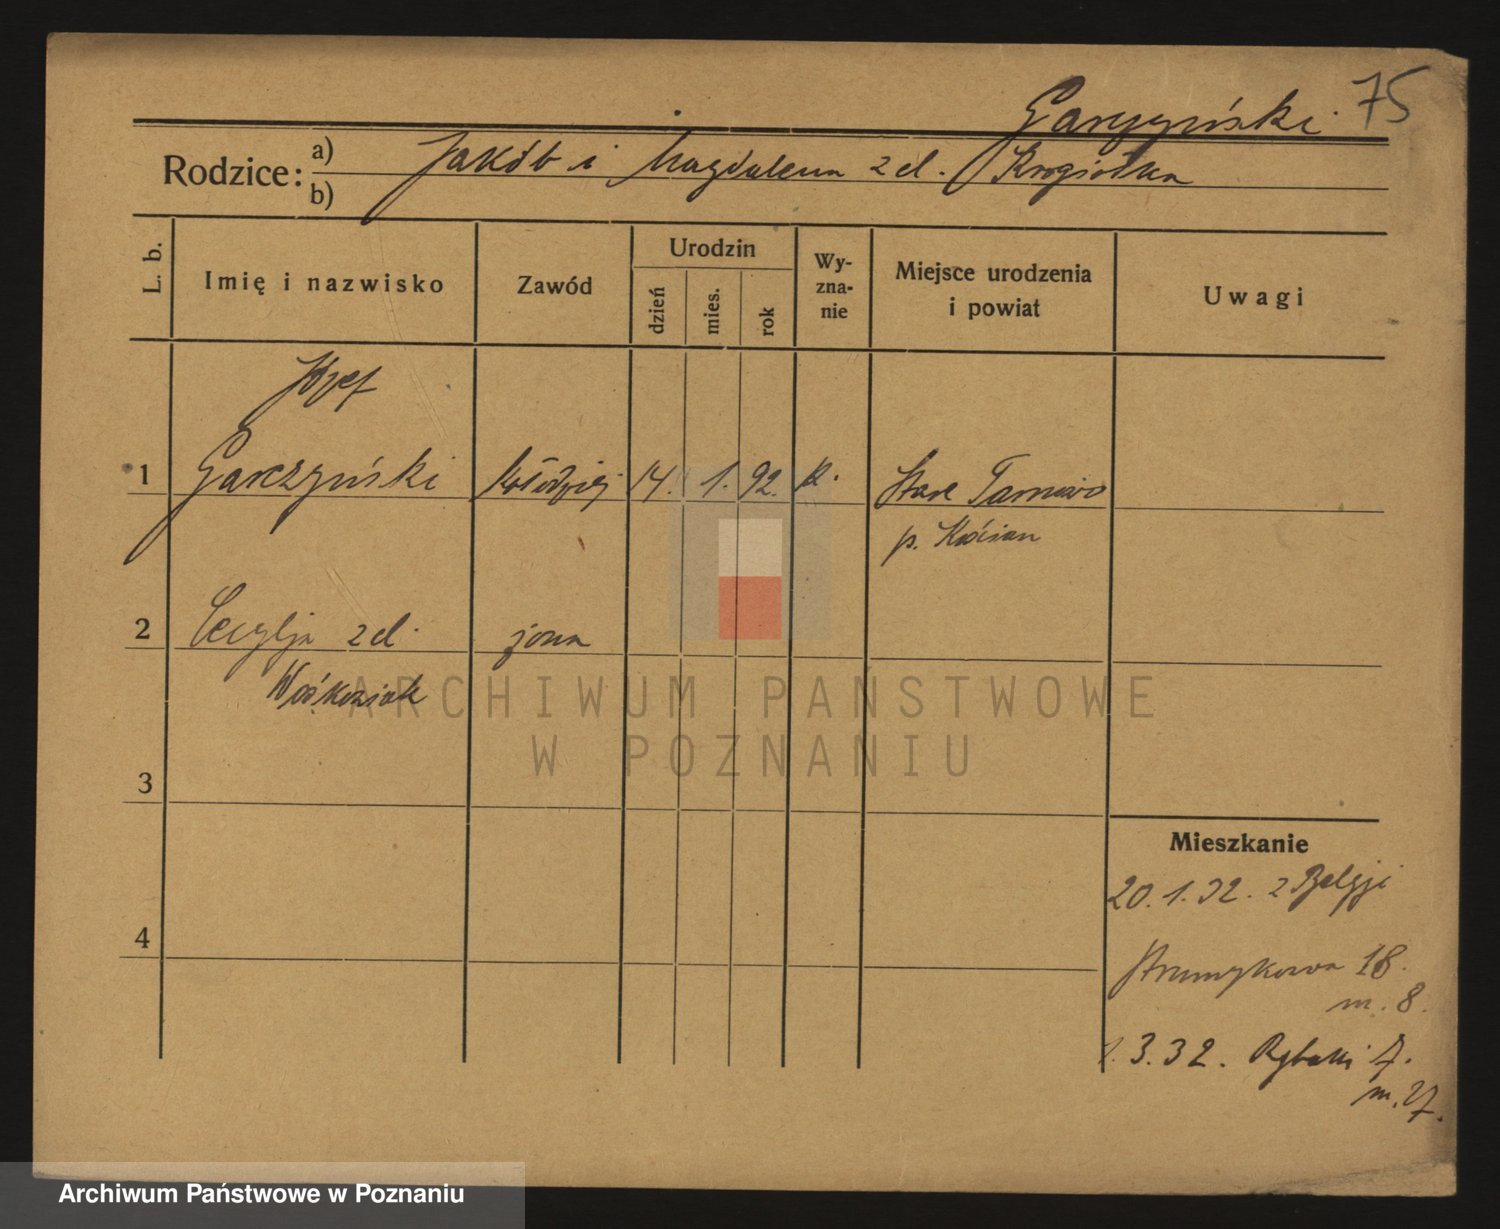 Garczyński 75
Rodzice: a) Jakób i Magdalena z d.
b)
L. b.
Imię i nazwisko
Zawód
Urodzin
dzień
mies.
rok
Wy-
zna-
nie
Miejsce urodzenia
i powiat
Uwagi
Józef
1 Garczyński kołodziej 14. 1. 92. k. Stare Tarnowo
p. Kościan
2 Cecylja z d. żona
3
4
Mieszkanie
20.1.32. z Belgji
Strumykowa 18.
m. 8.
1.3.32. Rybaki 7.
m. 27.
ARCHIWUM PAŃSTWOWE
W POZNANIU
Archiwum Państwowe w Poznaniu